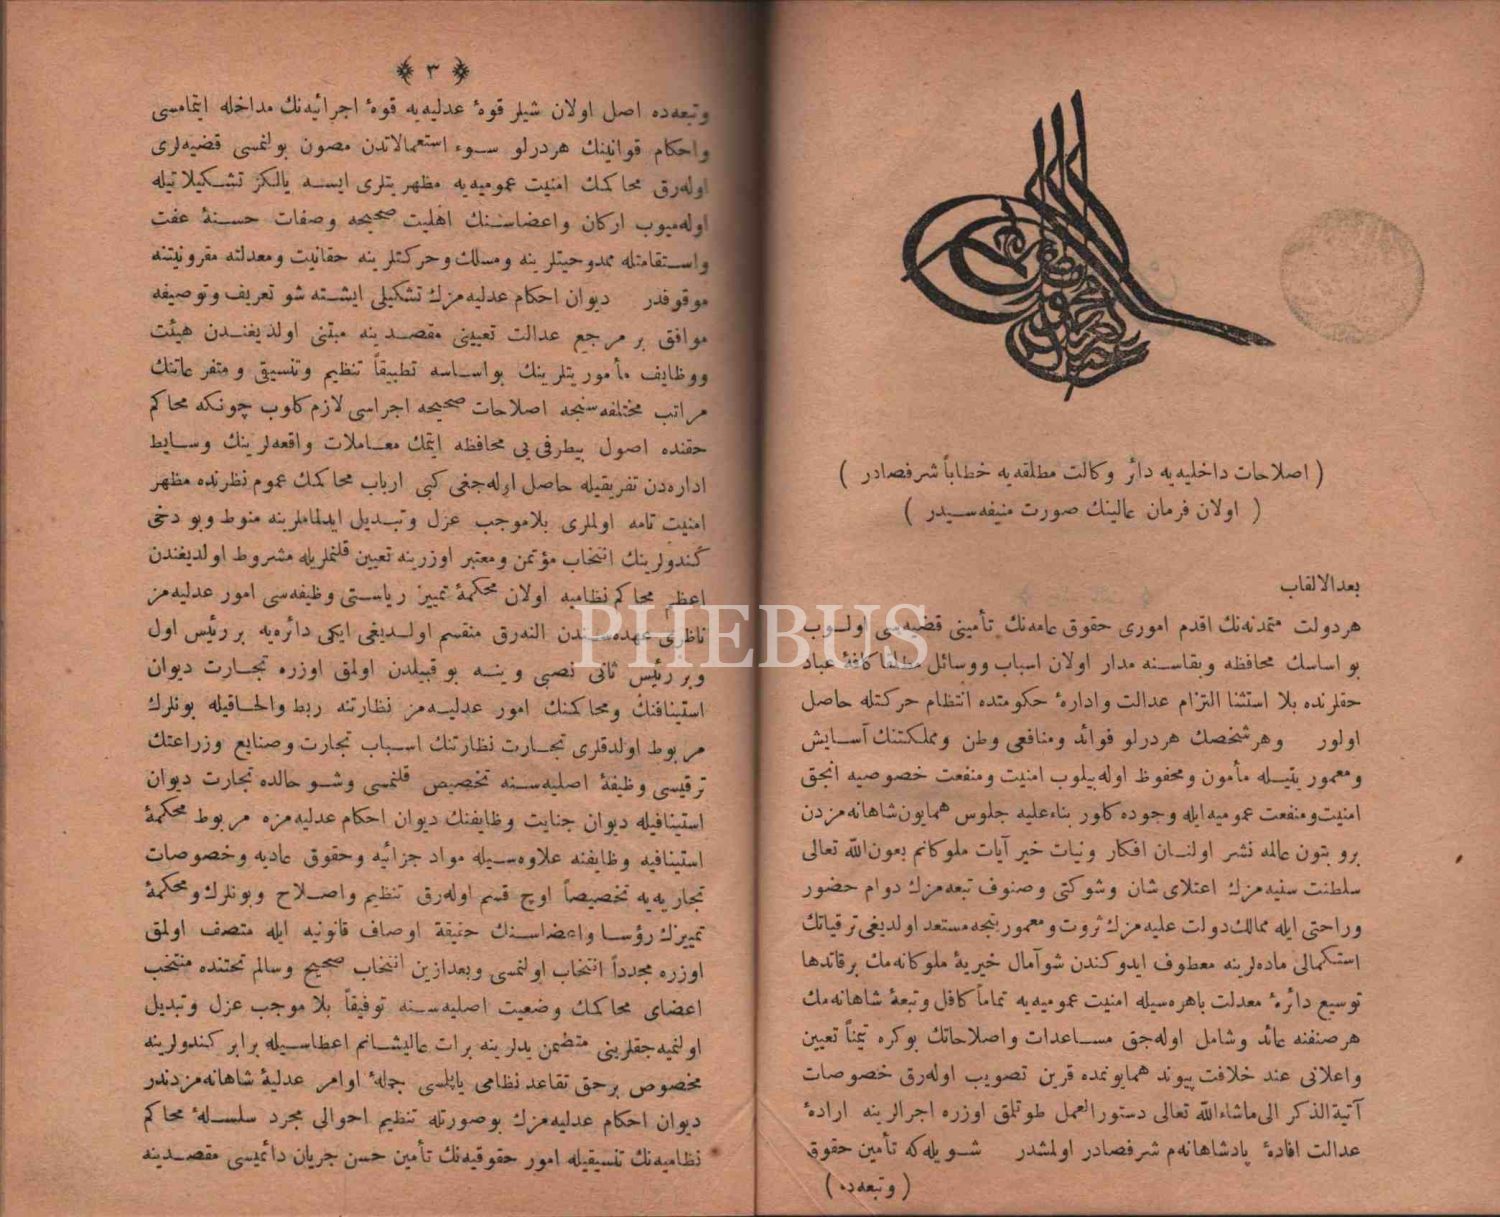 ( اصلاحات داخلیه‌یه دائر وكالت مطلقه‌یه خطاباً شرفصادر )
( اولان فرمان عالینك صورت منیفه‌سیدر )
بعدالالقاب
هر دولت متمدنه‌نك اقدم اموری حقوق عامه‌نك تأمینی قضیه‌سی اولوب
بو اساسك محافظه و بقاسنه مدار اولان اسباب و وسائل مطلقا كافهٔ عباد
حقلرنده بلا استثنا التزام عدالت و ادارهٔ حكومتده انتظام حركتله حاصل
اولور وهر شخصك هردرلو فوائد ومنافعی وطن ومملكتنك آسایش
ومعموریتیله مأمون ومحفوظ اوله‌بیلوب امنیت ومنفعت خصوصیه انجق
امنیت ومنفعت عمومیه‌ایله وجوده كلور بناء علیه جلوس همایون شاهانه‌مزدن
برو بتون عالمه نشر اولنان افكار ونیات خیر آیات ملوكانم بعون‌الله تعالی
سلطنت سنیه‌مزك اعتلای شان وشوكتی وصنوف تبعه‌مزك دوام حضور
وراحتی ایله ممالك دولت علیه‌مزك ثروت ومعموریتجه مستعد اولدیغی ترقیاتك
استكمالی ماده‌لرینه معطوف ایدوكندن شو آمال خیریهٔ ملوكانه‌مك برقاتدها
توسیع دائرهٔ معدلت باهره‌سیله امنیت عمومیه‌یه تماماً كافل وتبعهٔ شاهانه‌مك
هر صنفنه عائد وشامل اوله‌جق مساعدات واصلاحاتك بوكره تیمناً تعیین
واعلانی عند خلافت پیوند همایونمده قرین تصویب اوله‌رق خصوصات
آتیةالذكر الی ماشاءالله تعالی دستورالعمل طوتلمق اوزره اجرالرینه ارادهٔ
عدالت افادهٔ پادشاهانه‌م شرفصادر اولمشدر شویله‌كه تأمین حقوق
( وتبعه‌ده )
﴿ ٣ ﴾
وتبعه‌ده اصل اولان شیلر قوهٔ عدلیه‌یه قوهٔ اجرائیه‌نك مداخله ایتمامسی
واحكام قوانینك هردرلو سوء استعمالاتدن مصون بولنمسی قضیه‌لری
اوله‌رق محاكمك امنیت عمومیه‌یه مظهریتلری ایسه یالكز تشكیلاتیله
اوله‌میوب اركان واعضاسنك اهلیت صحیحه وصفات حسنهٔ عفت
واستقامتله ممدوحیتلرینه ومسلك وحركتلرینه حقانیت ومعدلته مقرونیتنه
موقوفدر دیوان احكام عدلیه‌مزك تشكیلی ایشته شو تعریف وتوصیفه
موافق بر مرجع عدالت تعیینی مقصدینه مبتنی اولدیغندن هیئت
ووظایف مأموریتلرینك بواساسه تطبیقاً تنظیم وتنسیقی ومتفرعاتنك
مراتب مختلفه‌سنجه اصلاحات صحیحه اجراسی لازم كلوب چونكه محاكم
حقنده اصول بیطرفی‌یی محافظه ایتمك معاملات واقعه‌لرینك وسایط
اداره‌دن تفریقیله حاصل اوله‌جغی كبی ارباب محاكمك عموم نظرنده مظهر
امنیت تامه اولملری بلاموجب عزل وتبدیل ایدلماملرینه منوط وبو دخی
كندولرینك انتخاب مؤتمن ومعتبر اوزرینه تعیین قلنملریله مشروط اولدیغندن
اعظم محاكم نظامیه اولان محكمهٔ تمییز ریاستی وظیفه‌سی امور عدلیه‌مز
ناظری عهده‌سندن النه‌رق منقسم اولدیغی ایكی دائره‌یه بر رئیس اول
وبر رئیس ثانی نصبی وینه بو قبیلدن اولمق اوزره تجارت دیوان
استینافنك ومحاكمنك امور عدلیه‌مز نظارتنه ربط والحاقیله بونلرك
مربوط اولدقلری تجارت نظارتنك اسباب تجارت وصنایع وزراعتك
ترقیسی وظیفهٔ اصلیه‌سنه تخصیص قلنمسی وشو حالده تجارت دیوان
استینافیله دیوان جنایت وظایفنك دیوان احكام عدلیه‌مزه مربوط محكمهٔ
استینافیه وظایفنه علاوه‌سیله مواد جزائیه وحقوق عادیه وخصوصات
تجاریه‌یه تخصیصاً اوچ قسم اوله‌رق تنظیم واصلاح وبونلرك ومحكمهٔ
تمییزك رؤسا واعضاسنك حقیقة اوصاف قانونیه ایله متصف اولمق
اوزره مجدداً انتخاب اولنمسی وبعدازین انتخاب صحیح وسالم تحتنده منتخب
اعضای محاكمك وضعیت اصلیه‌سنه توفیقاً بلا موجب عزل وتبدیل
اولنمیه‌جقلرینی متضمن یدلرینه برات عالیشانم اعطاسیله برابر كندولرینه
مخصوص برحق تقاعد نظامی یاپلسی جملهٔ اوامر عدلیهٔ شاهانه‌مزدندر
دیوان احكام عدلیه‌مزك بوصورتله تنظیم احوالی مجرد سلسلهٔ محاكم
نظامیه‌نك تنسیقیله امور حقوقیه‌نك تأمین حسن جریان دائمیسی مقصدینه
PHEBUS